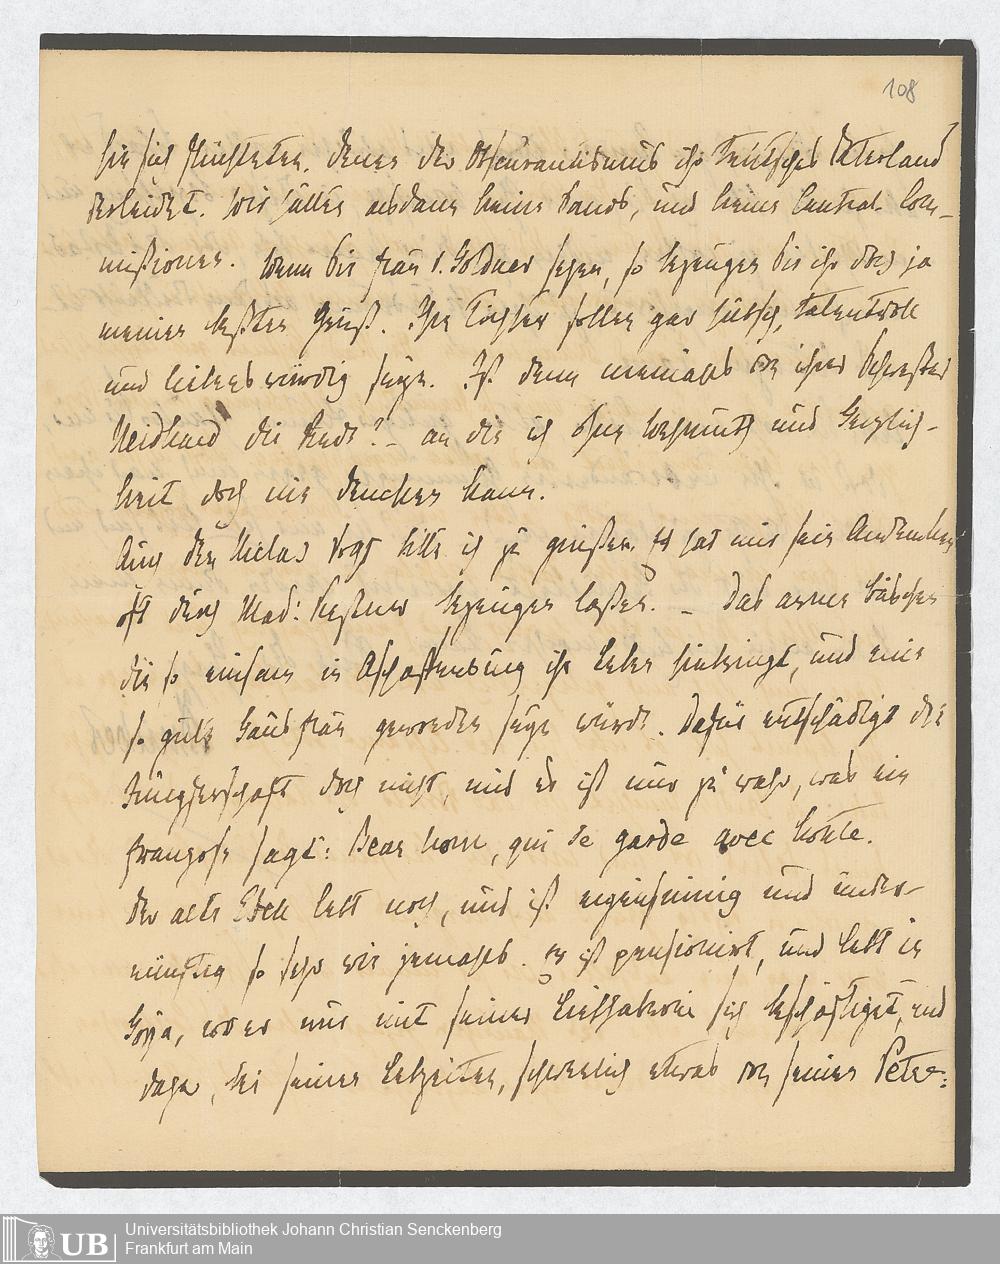 108
hin sich flüchteten, denen der Obscurantismus ihr teutsches Vaterland
verleidet. Wir hätten alsdann keine Sands, und keine Central-Com-
mißionen. Wenn Sie Frau v. Goldner sehen, so bezeugen Sie ihr doch ja
meinen besten Gruß. Ihre Töchter sollen gar hübsch, talentvoll
und liebenswürdig seyn. Ist denn niemahls von ihrer Schwester
Neidhard die Rede? – an die ich ohne Wehmuth und Herzlich-
keit doch nie dencken kann.
Auch den Niclas Vogt bitte ich zu grüßen. Er hat mir sein Andencken
oft durch Mad: Keßner bezeugen laßen. – Das arme Bäschen
die so einsam in Aschaffenburg ihr Leben hinbringt, und eine
so gute Hausfrau geworden seyn würde. Dafür entschädigt die
Jungferschaft doch nicht, und es ist nur zu wahr, was ein
Franzose sagt: Beau , qui se garde avec honte.
Der alte lebt noch, und ist eigensinnig und unver-
nünftig so sehr wie jemahls. Er ist pensionirt, und lebt in
, wo er nur mit seiner Liebhaberei sich beschäftiget, und
, bei seinen Lebzeiten, schwerlich etwas von seinen Petre-
Universitätsbibliothek Johann Christian Senckenberg
Frankfurt am Main
UB